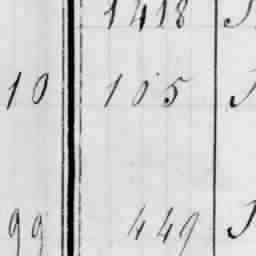 1418
10 105
99 449